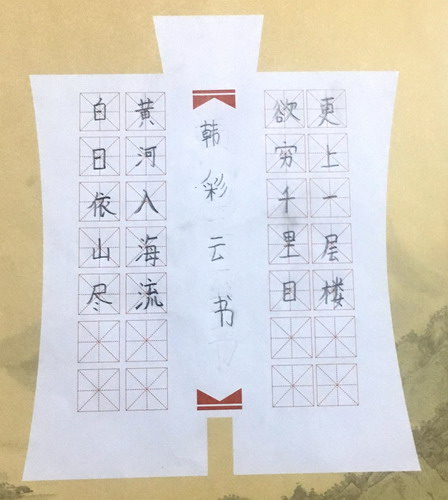 白日依山尽
黄河入海流
韩彩云书
欲穷千里目
更上一层楼